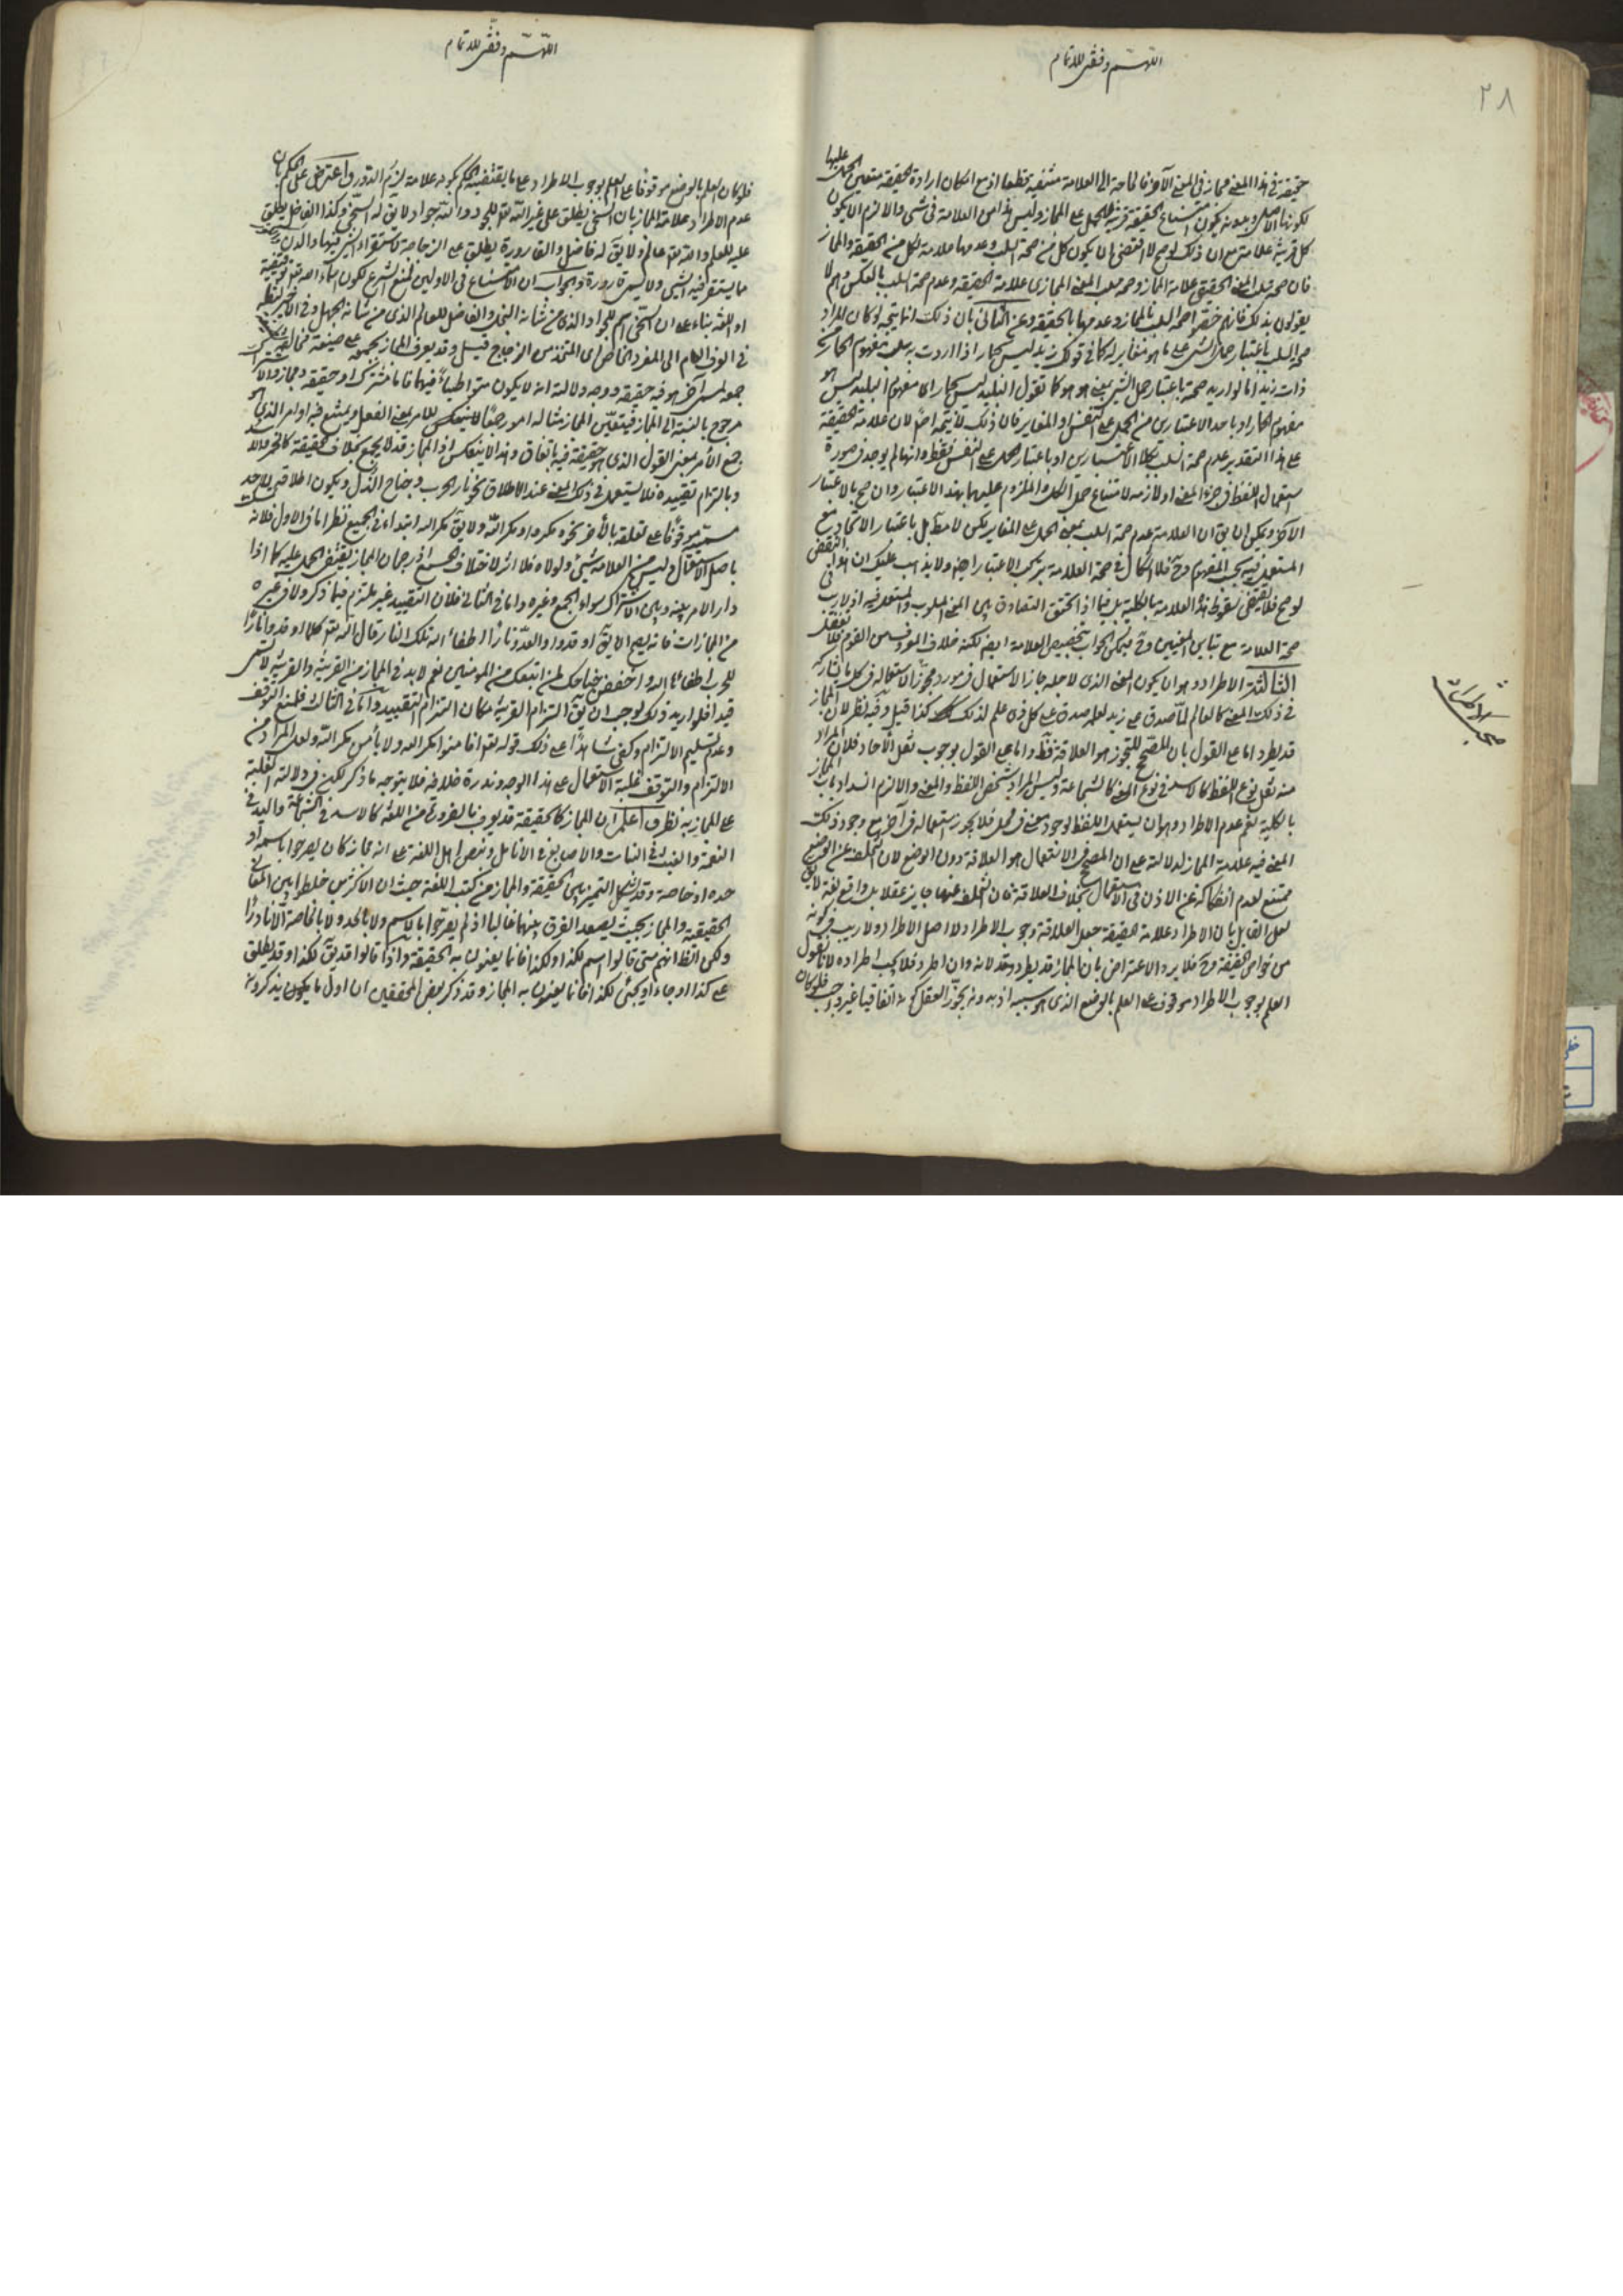 ٢٨
اللهم وفقنى للاتمام
حقيقة فى هذا المعنى مجاز فى المعنى الآخر فالحاجة الى العلامة منتفية قطعا اذ مع امكان ارادة الحقيقة متعين الحمل عليها
لكونها الاصل وبدونه يكون امتناع الحقيقة قرينة للحمل على المجاز وليس هذا من العلامة فى شى والا لزم ان يكون
كل قرينة علامة مع ان ذلك لو صح لاقتضى ان يكون كل من صحة السلب وعدمها علامة لكل من الحقيقة والمجاز
فان صحة سلب المعنى الحقيقى علامة المجاز وصحة سلب المعنى المجازى علامة الحقيقة وعدم صحة السلب بالعكس وهم لا
يقولون بذلك فانهم خصوا صحة السلب بالمجاز وعدمها بالحقيقة وعن الثانى بان ذلك انما يتجه لو كان المراد
صحة السلب باعتبار حمل الشى على ما هو مغاير له كما فى قولك زيد ليس بحمار اذا اردت به سلب مفهوم الحمار عن
ذات زيد اما لو اريد صحة باعتبار حمل الشى بمعنى هو هو كما تقول البليد ليس بحمار اى مفهوم البليد ليس هو
مفهوم الحمار او باحد الاعتبارين من الحمل على النفس او المغاير فان ذلك لا يتجه اصلا لان علامة الحقيقة
على هذا التقدير عدم صحة السلب بكلا الاعتبارين او باعتبار الحمل على النفس فقط وانها لم يوجد فى صورة
استعمال اللفظ فى جزء المعنى او لازمه لامتناع حمل الكل والملزوم عليهما بهذا الاعتبار وان صح بالاعتبار
الآخر ويمكن ان يق ان العلامة عدم صحة السلب بمعنى الحمل على المغاير لكن لا مطلقا بل باعتبار الاتحاد مع
المستعمل فيه بحسب المفهوم وح فلا اشكال فى صحة العلامة بحسب الاعتبار ايضا ولا يذهب عليك ان هذا النقض
لو صح فلا يقتضى سقوط هذه العلامة بالكلية بل فيما اذا تحقق التصادق بين المعنى المسلوب والمستعمل فيه اذ لا ريب فى
صحة العلامة مع تباين المعنيين وح فيمكن الجواب بتخصيص العلامة ايضا لكنه خلاف المعروف من القوم فلا تغفل
الثالثة الاطراد وهو ان يكون المعنى الذى لاجله جاز الاستعمال فى مورد مجوزا لاستعماله فى كل ما يشاركه
فى ذلك المعنى كالعالم لما صدق على زيد لعلمه صدق على كل ذى علم لذلك كذا قيل وفيه نظر لان المجاز
قد يطرد اما على القول بان المصحح للتجوز هو العلاقة فظ واما على القول بوجوب نقل الآحاد فلان المراد
منه نقل نوع اللفظ كالاسد فى نوع المعنى كالشجاعة وليس المراد شخص اللفظ والمعنى والا لزم انسداد باب المجاز
بالكلية نعم عدم الاطراد وهو ان يستعمل اللفظ لوجود معنى فى محل فلا يجوز استعماله فى آخر مع وجود ذلك
المعنى فيه علامة المجاز لدلالته على ان المصحح فى الاستعمال هو العلاقة دون الوضع لان التخلف عن الوضع
ممتنع لعدم انفكاكه عن الاذن فى الاستعمال بخلاف العلاقة فان التخلف عنها جايز عقلا بل واقع لغة لا يق
لعل القايل بان الاطراد علامة الحقيقة جعل العلاقة وجوب الاطراد لا اصل الاطراد ولا ريب فى كونه
من خواص الحقيقة وح فلا يرد الاعتراض بان المجاز قد يطرد وقد لا لانه وان اطرد فلا يجب اطراده لانا نقول
العلم بوجوب الاطراد موقوف على العلم بالوضع الذى هو سببه اذ بدونه يجوز العقل كونه اتفاقيا غير واجب فلو كان
مبحث الاطراد
اللهم وفقنى للاتمام
فلو كان العلم بالوضع موقوفا على العلم بوجوب الاطراد على ما يقتضيه الحكم بكونه علامة لزم الدور واعترض على الحكم بان
عدم الاطراد علامة المجاز بان السخى يطلق على غير الله تع للجود والله جواد ولا يق له السخى وكذا الفاضل يطلق
عليه للعلم والله تع عالم ولا يق له فاضل والقارورة يطلق على الزجاجة لاستقرار الشى فيها والدن
ما يستقر فيه الشى ولا يسمى قارورة والجواب ان الامتناع فى الاولين لمنع الشرع لكون اسماء الله تع توقيفية
او اللغة بناء على ان السخى اسم للجواد الذى من شانه البخل والفاضل للعالم الذى من شانه الجهل وفى الاخير لنقله
فى العرف العام الى المفرد الخاص اى المتخذ من الزجاج قيل وقد يعرف المجاز بجمعه على صيغة مخالفة
جمعه لمسمى آخر هو فيه حقيقة ووجه دلالته انه لا يكون متواطيا فيهما فاما مشترك او حقيقة ومجاز والاشتراك
مرجوح بالنسبة الى المجاز فيتعين المجاز مثاله امور جمعا للامر بمعنى الفعل ويمتنع فيه اوامر الذى هو
جمع الأمر بمعنى القول الذى هو حقيقة فيه باتفاق وهذا لا ينعكس اذ المجاز قد لا يجمع بخلاف الحقيقة
وبالتزام تقييده فلا يستعمل فى ذلك المعنى عند الاطلاق نحو نار الحرب وجناح الذل وبكون اطلاقه لاحد
مسمييه موقوفا على تعلقه بالآخر نحو ومكروا ومكر الله ولا يق مكر الله ابتداء وفى الجميع نظر اما فى الاول فلانه
باصل الاستعمال وليس من العلامة شى ولولاه فلا اثر لاختلاف الجمع اذ رجحان المجاز يقتضى الحمل عليه كما اذا
دار الامر بينه وبين الاشتراك سواء الجمع وغيره واما فى الثانى فلان التقييد غير ملتزم فيما ذكر ولا فى غيره
من المجازات فانه يصح ان يق اوقدوا والعدو نارا اطفا الله تلك النار قال الله تع كلما اوقدوا نارا
للحرب اطفاها الله واخفض جناحك لمن اتبعك من المومنين نعم لابد فى المجاز من القرينة والقرينة لا تسمى
قيدا فلو اريد ذلك لوجب ان يق التزام القرينة مكان التزام التقييد واما فى الثالث فلمنع التوقف
وعدم تسليم الالتزام وكفى شاهدا على ذلك قوله تع افامنوا مكر الله ولا يأمن مكر الله ولعل المراد من
الالتزام والتوقف غلبة الاستعمال على هذا الوجه وندرة خلافه فلا يتوجه ما ذكر لكن فى دلالته الغلبة
على المجازية نظر ف اعلم ان المجاز كالحقيقة قد يعرف بالضرورة من اللغة كالاسد فى الشجاعة واليد فى
النعمة والغيث فى النبات والاصابع فى الانامل وبنص اهل اللغة على انه مجاز كان يصرحوا باسمه او
حده او خاصة وقد يشكل التمييز بين الحقيقة والمجاز من كتب اللغة حيث ان الاكثرين خلطوا بين المعانى
الحقيقية والمجاز بحيث يصعد الفرق بينهما غالبا اذ لم يصرحوا بالاسم ولا بالحد ولا بالخاصة الا نادرا
ولكن الظ انهم متى قالوا اسم لكذا او لكذا فانما يعنون به الحقيقة واذا قالوا قد يق لكذا او قد يطلق
على كذا او جاء او يجئ لكذا فانما يعنون به المجاز وقد ذكر بعض المحققين ان اول ما يكون يذكرونه